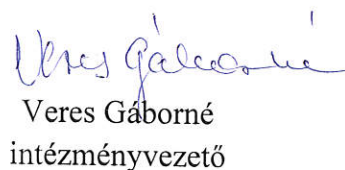 Veres Gáborné
Veres Gáborné
intézményvezető